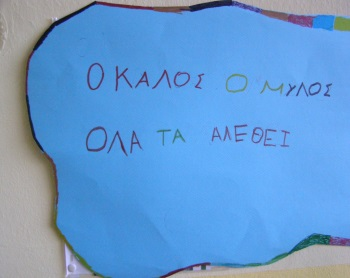 Ο ΚΑΛΟΣ Ο ΜΥΛΟΣ
ΟΛΑ ΤΑ ΑΛΕΘΕΙ